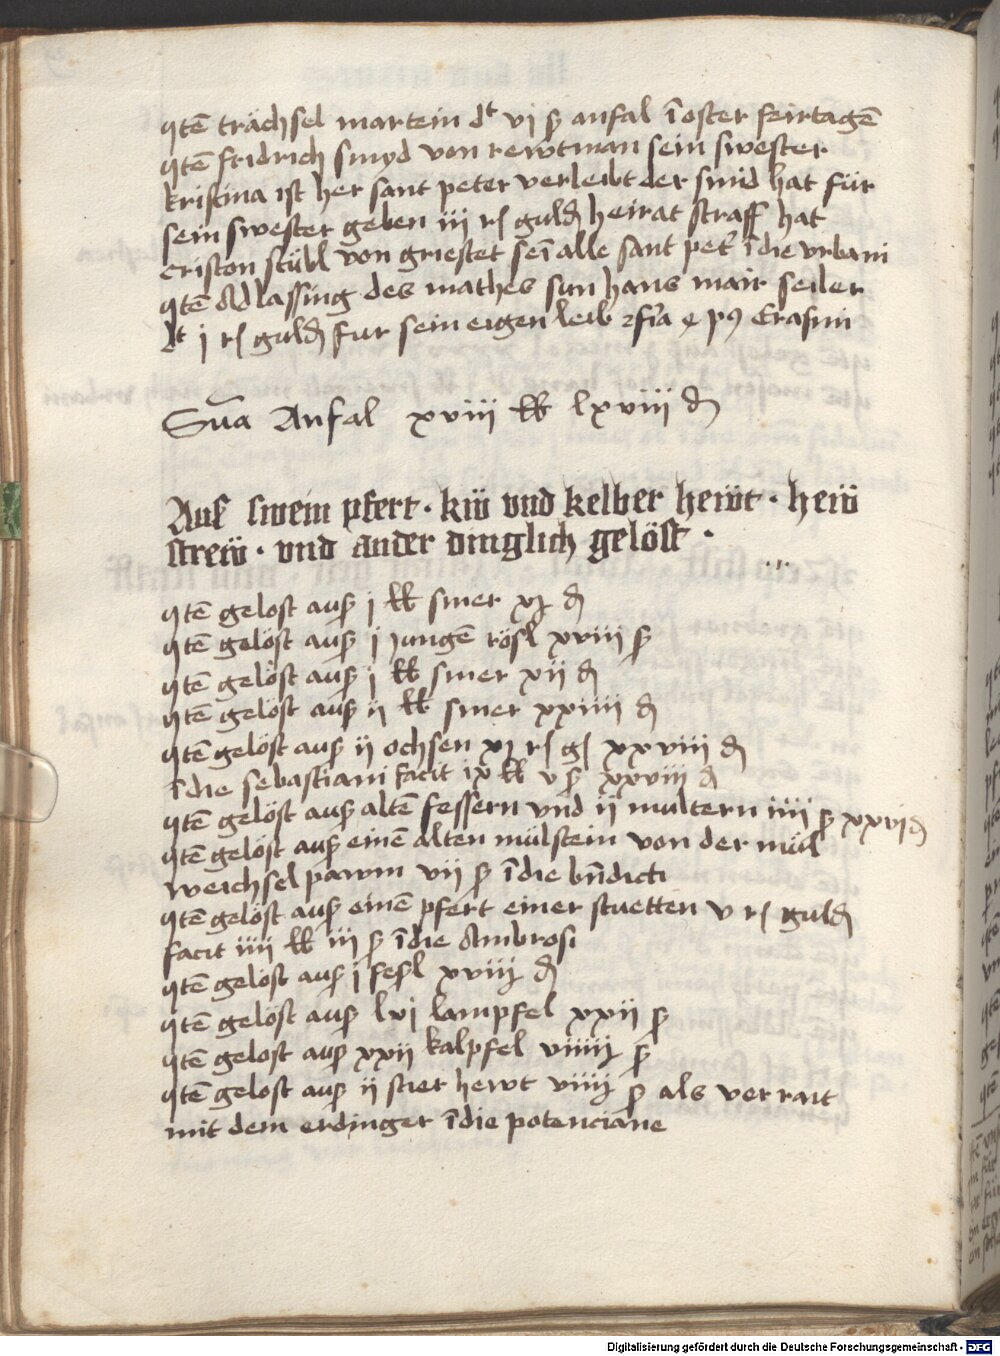 Itē trächsel martein dt vj ß anfal ī oster feirtagē
Itē fridrich smyd von rewtman sein swester
kristina ist her sant peter verleibt der smid hat für
sein swester geben iij rſ guldn heirat straff hat
criston stübl von griestet seī alle sant pet' ī die vrbani
Itē Adlassing des mathes sun hans mair seiler
dt j rſ guldn fur sein eigen leib Erasmi
Sūa Anfal xviij ℔ lxviij ₰
Aus swein pfert · kw̋ vnd kelber hewt · hew̋
strew̋ · vnd ander dinglich gelöst ·
Itē gelost auß j ℔ smer xj ₰
Itē gelöst auß j jungē rösl xviij ß
Itē gelöst auß j ℔ smer xij ₰
Itē gelöst auß ij ℔ smer xxiiij ₰
Itē gelöst auß ij ochsen xj rſ gſ xxviij ₰
ī die sebastiani facit ix ℔ v ß xxviij ₰
Itē gelöst auß altē fessern vnd ij multern iiij ß xxvj ₰
Itē gelöst auß einē alten mülstein von der mül
weichselpawm vij ß ī die bn̄dicti
Itē gelöst auß einē pfert einer stuetten v rſ guldn
facit iiij ℔ iij ß ī die Ambrosi
Itē gelöst auß j feßl xviij ₰
Itē gelöst auß lvj lampfel xxij ß
Itē gelost auß xxij kalpfel viiij ß
Itē gelost auß ij stier hewt viiij ß als verrait
mit dem erdinger ī die potenciane
Digitalisierung gefördert durch die Deutsche Forschungsgemeinschaft - DFG